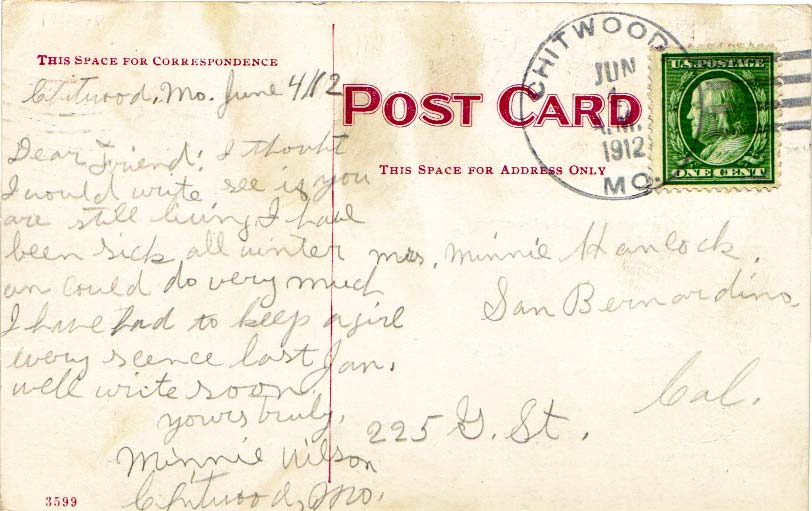 THIS SPACE FOR CORRESPONDENCE
Chitwood, Mo. June 4/12
Dear Friend: I thouht
I would write see is you
are still living, I have
been sick all winter
an could do very much
I have had to keep a girl
every scence last Jan.
well write soon,
yours truly,
Minnie Wilson
Chitwood, Mo.
3599
POST CARD
THIS SPACE FOR ADDRESS ONLY
CHITWOOD
JUN
4
A.M.
1912
MO.
U.S. POSTAGE
ONE CENT
Mrs. Minnie Hancock,
San Bernardino,
Cal.
225 G. St.